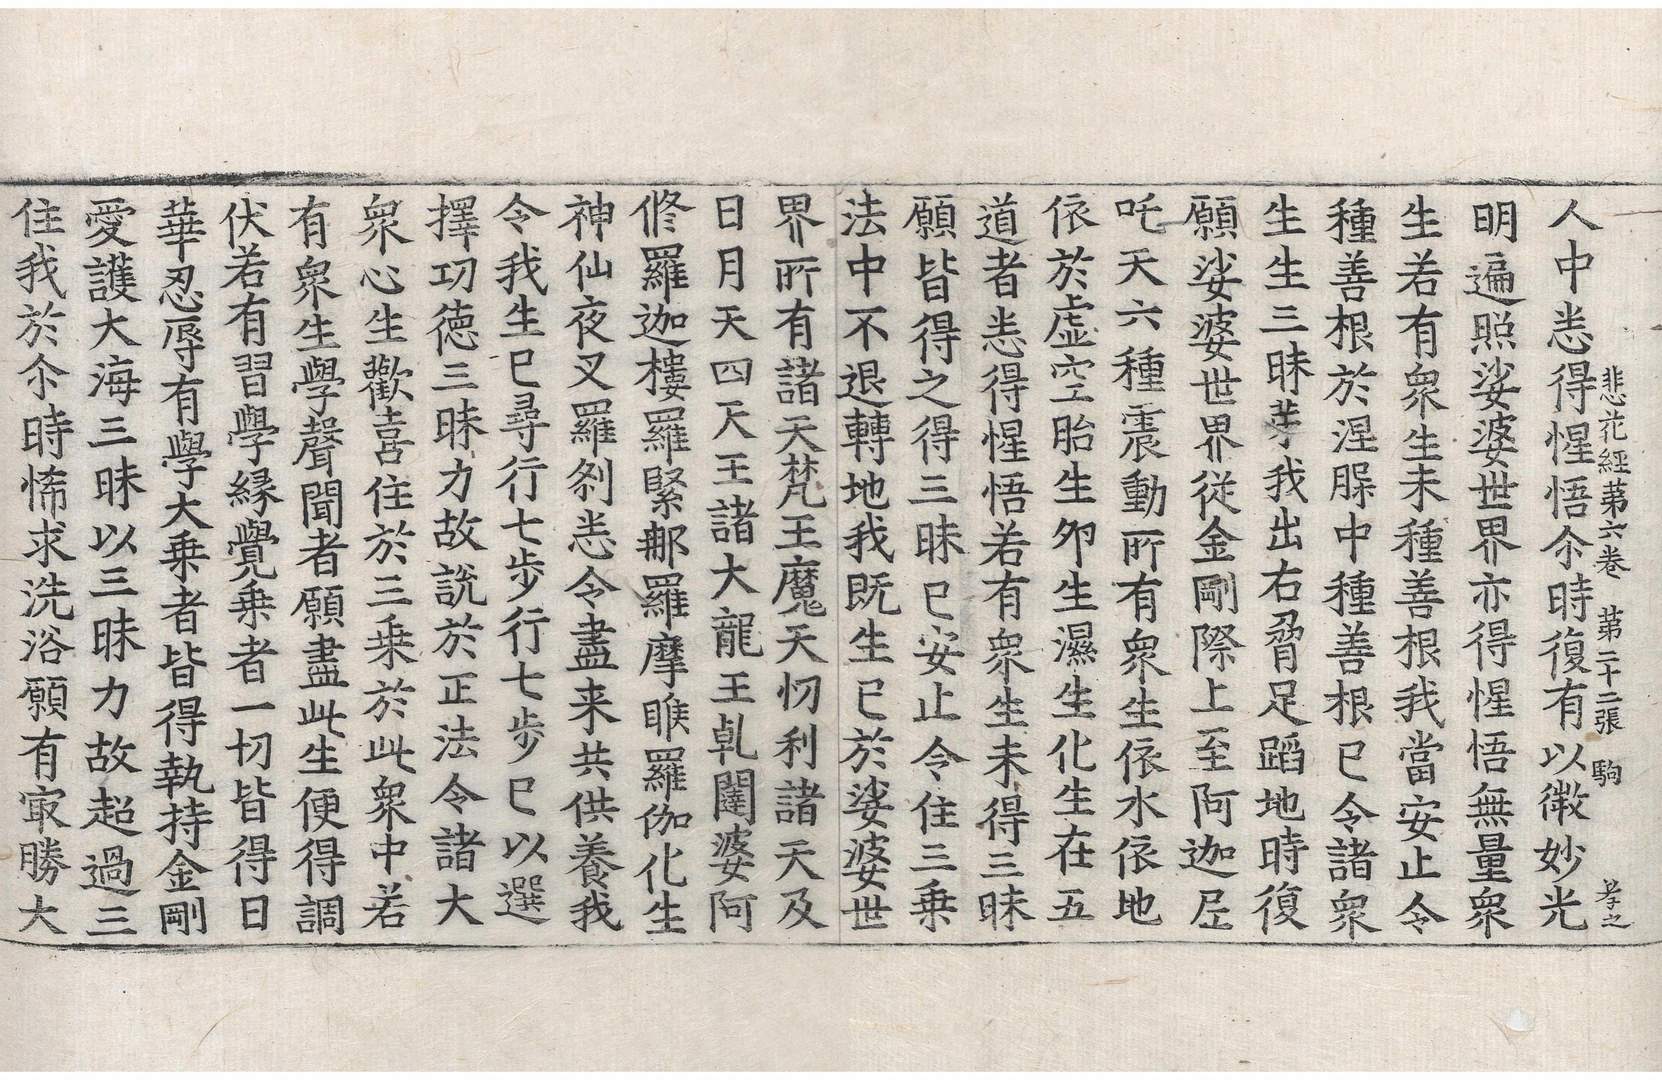 悲花經第六卷　第二十二張　駒　孝之
人中悉得惺悟尒時復有以微妙光
明遍照娑婆世界亦得惺悟無量衆
生若有衆生未種善根我當安止令
種善根於涅槃中種善根已令諸衆
生生三昧芽我出右脅足蹈地時復
願娑婆世界從金剛際上至阿迦尼
吒天六種震動所有衆生依水依地
依於虛空胎生卵生濕生化生在五
道者悉得惺悟若有衆生未得三昧
願皆得之得三昧已安止令住三乗
法中不退轉地我既生已於娑婆世
界所有諸天梵王魔天忉利諸天及
日月天四天王諸大龍王乹闥婆阿
脩羅迦樓羅緊那羅摩睺羅伽化生
神仙夜叉羅刹悉令盡来共供養我
令我生已尋行七步行七步已以選
擇功徳三昧力故說於正法令諸大
衆心生歡喜住於三乗於此衆中若
有衆生學聲聞者願盡此生便得調
伏若有習學縁覺乗者一切皆得日
華忍辱有學大乗者皆得執持金剛
愛護大海三昧以三昧力故超過三
住我於尒時悕求洗浴願有㝡勝大